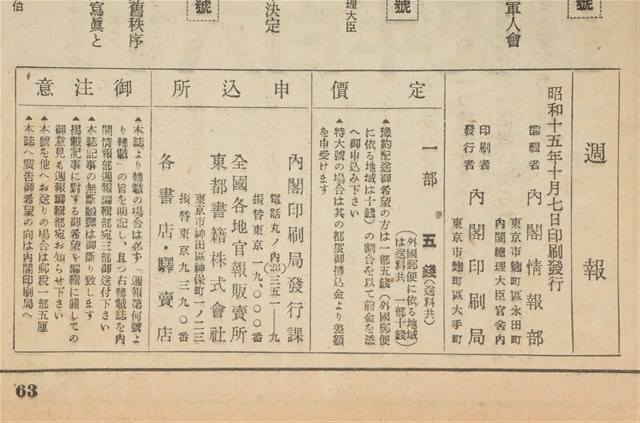 軍人會
號
理大臣
號
決定
號
舊秩序
寫眞と
伯
週報
昭和十五年十月七日印刷發行
編輯者 內閣情報部
東京市麴町區永田町
內閣總理大臣官舍內
印刷者
發行者 內閣印刷局
東京市麴町區大手町
定價
一部 五錢(送料共)
(外國郵便に依る地域
は送料共 一部十錢)
▲豫約配送御希望の方は一部五錢(外國郵便
に依る地域は十錢)の割合を以て前金を添
へ御申込み下さい
▲特大號の場合は其の都度御拂込金より差額
を申受けます
申込所
內閣印刷局發行課
電話丸ノ內(23)三五一—九
振替東京一九、〇〇〇番
全國各地官報販賣所
東都書籍株式會社
東京市神田區神保町一ノ二三
振替東京九三九〇番
各書店・驛賣店
御注意
▲本誌より轉載の場合は必ず「週報第何號よ
り轉載」の旨を明記し、且つ右轉載誌を內
閣情報部週報編輯部宛三部御送付下さい
▲本誌記事の無斷飜譯は御斷り致します
▲揭載記事に對する御希望や編輯に關しての
御意見も週報編輯部宛お知らせ下さい
▲本號を他へお送りの場合は郵稅一部五厘
▲本誌へ廣告御希望の向は內閣印刷局へ
63